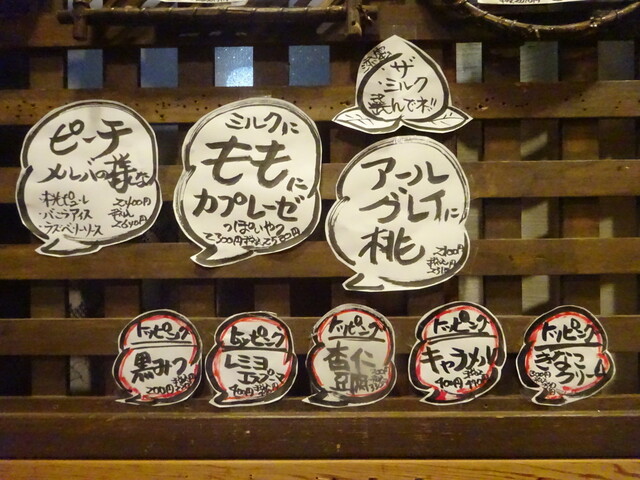 ザ
・ミルク
選んでネ!!
ピーチ
メルバの様な
・桃ピューレ
・バニラアイス
・ラズベリーソース
2400円
税込
2640円
ミルクに
ももに
カプレーゼ
っぽいやつ
2300円 税込 2530円
アール
グレイに
桃
税込
トッピング
黒みつ
200円
トッピング
レモン
400円
トッピング
杏仁
豆腐
トッピング
キャラメル
400円 税込 440円
トッピング
きなこ
クリーム
300円